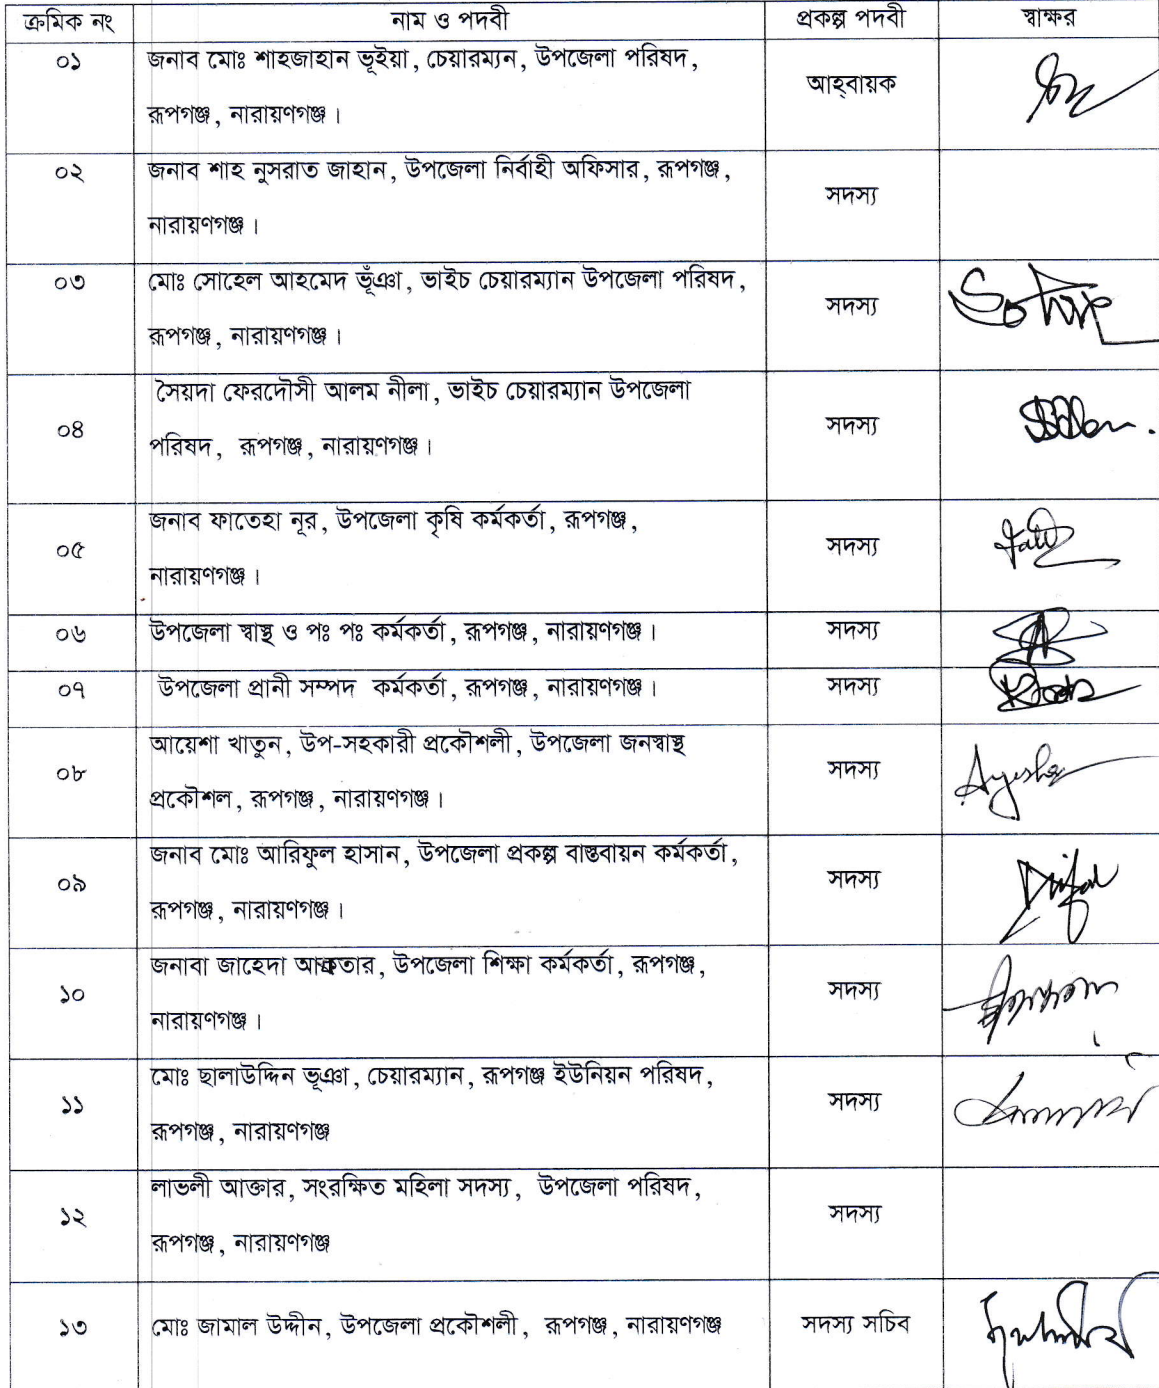 ক্রমিক নং নাম ও পদবী প্রকল্প পদবী স্বাক্ষর
০১ জনাব মোঃ শাহজাহান ভূইয়া, চেয়ারম্যন, উপজেলা পরিষদ,
রূপগঞ্জ, নারায়ণগঞ্জ। আহ্বায়ক
০২ জনাব শাহ নুসরাত জাহান, উপজেলা নির্বাহী অফিসার, রূপগঞ্জ,
নারায়ণগঞ্জ। সদস্য
০৩ মোঃ সোহেল আহমেদ ভূঁঞা, ভাইচ চেয়ারম্যান উপজেলা পরিষদ,
রূপগঞ্জ, নারায়ণগঞ্জ। সদস্য
০৪ সৈয়দা ফেরদৌসী আলম নীলা, ভাইচ চেয়ারম্যান উপজেলা
পরিষদ, রূপগঞ্জ, নারায়ণগঞ্জ। সদস্য
০৫ জনাব ফাতেহা নূর, উপজেলা কৃষি কর্মকর্তা, রূপগঞ্জ,
নারায়ণগঞ্জ। সদস্য
০৬ উপজেলা স্বাস্থ ও পঃ পঃ কর্মকর্তা, রূপগঞ্জ, নারায়ণগঞ্জ। সদস্য
০৭ উপজেলা প্রানী সম্পদ কর্মকর্তা, রূপগঞ্জ, নারায়ণগঞ্জ। সদস্য
০৮ আয়েশা খাতুন, উপ-সহকারী প্রকৌশলী, উপজেলা জনস্বাস্থ
প্রকৌশল, রূপগঞ্জ, নারায়ণগঞ্জ। সদস্য Ayesha
০৯ জনাব মোঃ আরিফুল হাসান, উপজেলা প্রকল্প বাস্তবায়ন কর্মকর্তা,
রূপগঞ্জ, নারায়ণগঞ্জ। সদস্য
১০ জনাবা জাহেদা আকতার, উপজেলা শিক্ষা কর্মকর্তা, রূপগঞ্জ,
নারায়ণগঞ্জ। সদস্য
১১ মোঃ ছালাউদ্দিন ভূঞা, চেয়ারম্যান, রূপগঞ্জ ইউনিয়ন পরিষদ,
রূপগঞ্জ, নারায়ণগঞ্জ সদস্য
১২ লাভলী আক্তার, সংরক্ষিত মহিলা সদস্য, উপজেলা পরিষদ,
রূপগঞ্জ, নারায়ণগঞ্জ সদস্য
১৩ মোঃ জামাল উদ্দীন, উপজেলা প্রকৌশলী, রূপগঞ্জ, নারায়ণগঞ্জ সদস্য সচিব